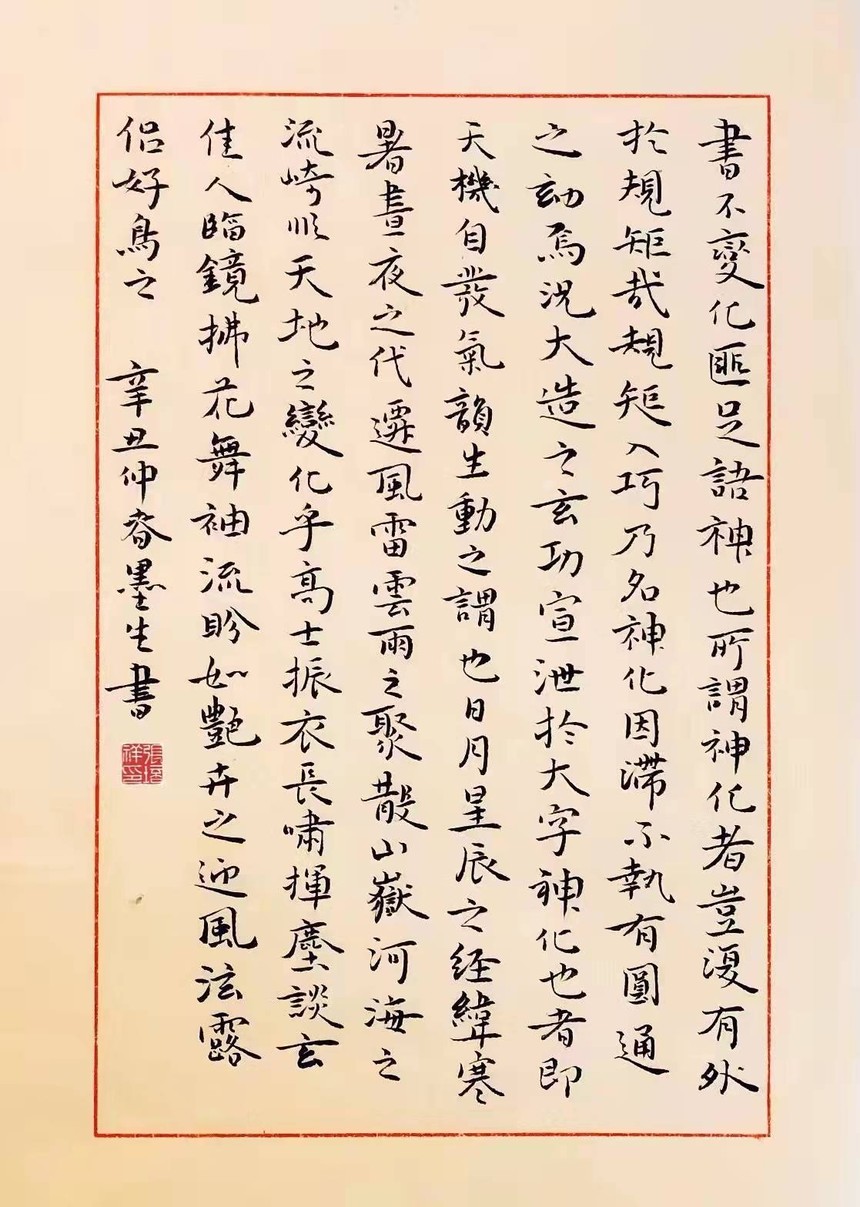 書不變化匪足語神也所謂神化者豈復有外
於規矩哉規矩入巧乃名神化因滯不執有圓通
之妙焉況大造之玄功宣泄於大字神化也者即
天機自發氣韻生動之謂也日月星辰之経緯寒
暑晝夜之代遷風雷雲雨之聚散山嶽河海之
流崎非天地之變化乎高士振衣長嘯揮塵談玄
佳人臨鏡拂花舞袖流盼如艷卉之迎風泫露
侣好鳥之 辛丑仲春墨生書